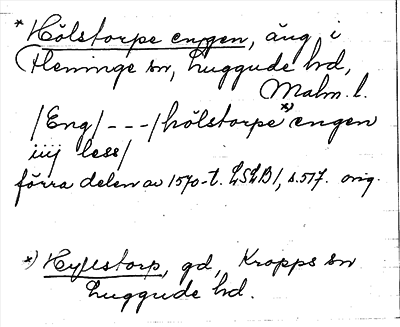 * Hölstorpe engen, äng i
Fleninge sn, Luggude hd,
Malm. l.
/Eng/ - - - /hölstorpe *) engen
iiij less/
förra delen av 1570-t. LSLB1, s. 517. orig.
*) Hyllstorp, gd, Kropps sn
Luggude hd.